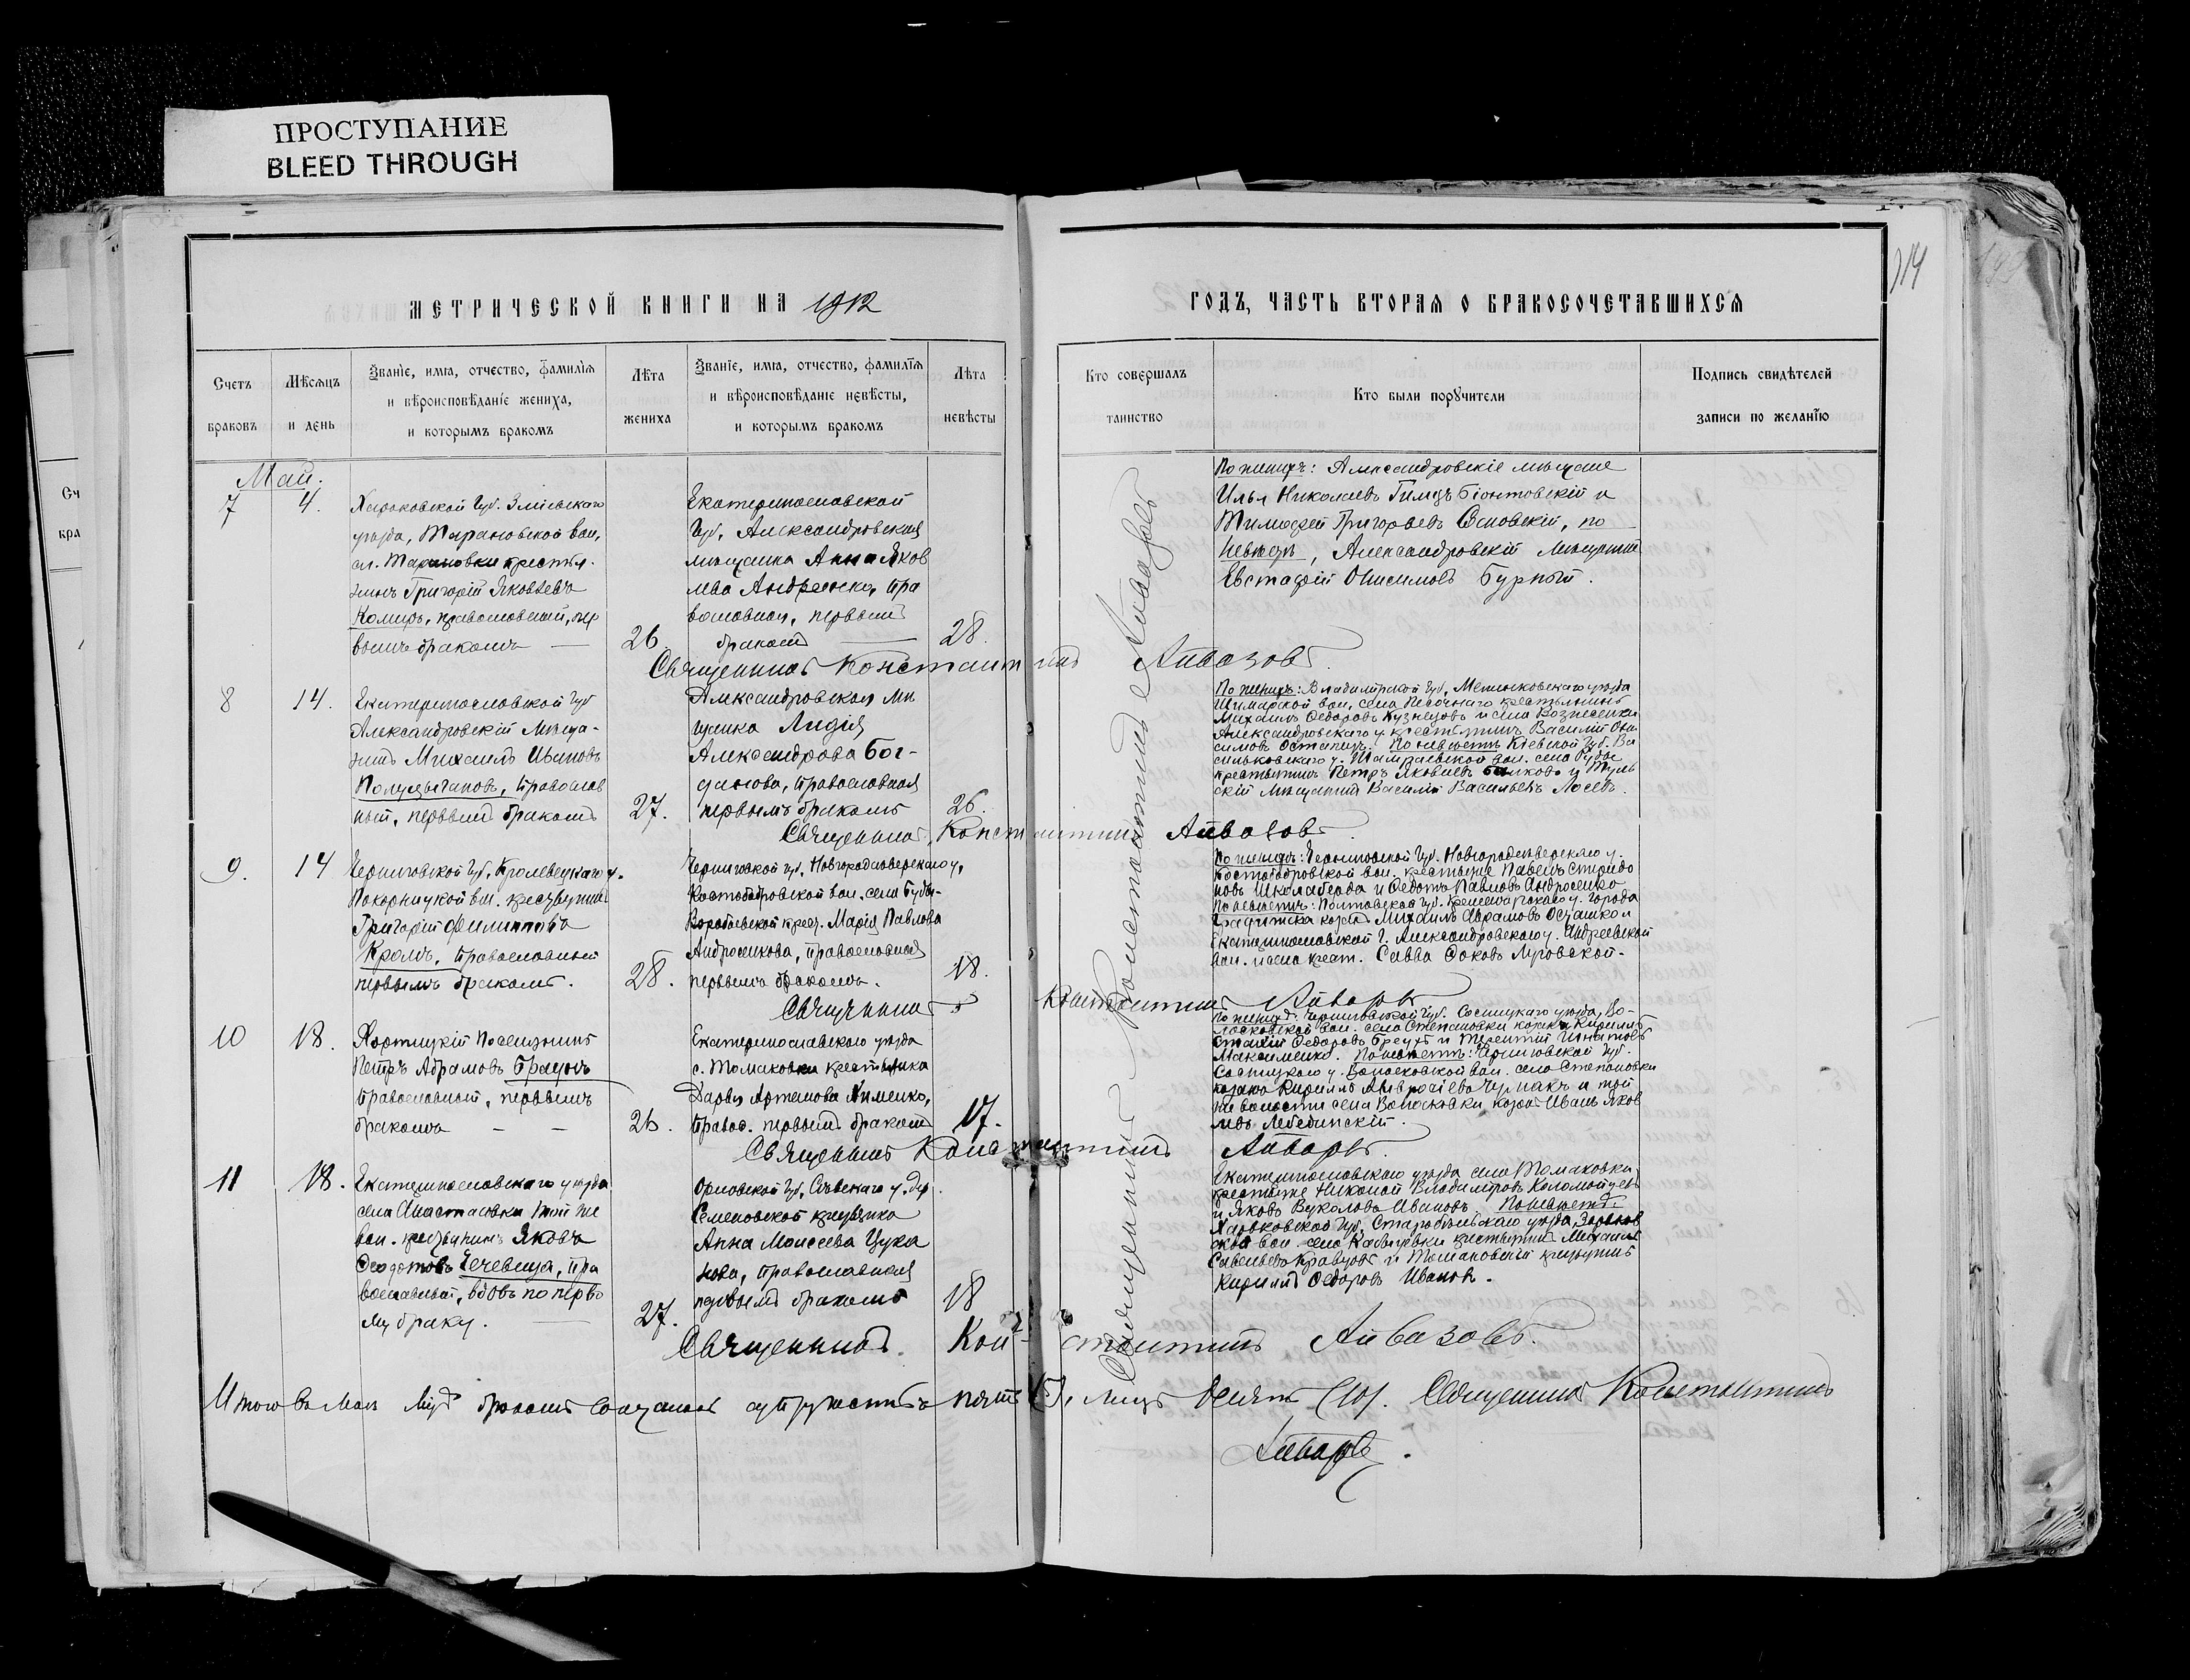 ПРОСТУПАНИЕ
BLEED THROUGH
МЕТРИЧЕСКОЙ КНИГИ НА 1912
Счетъ
браковъ
Мѣсяцъ
и день
Званіе, имя, отчество, фамилія
и вѣроисповѣданіе жениха,
и которымъ бракомъ
Лѣта
жениха
Званіе, имя, отчество, фамилія
и вѣроисповѣданіе невѣсты,
и которымъ бракомъ
Лѣта
невѣсты
Май.
7
4.
Харьковской Губ. Зміевскаго
уѣзда, Тарановской вол,
сл. Тарановки крестья-
нинъ Григорій Яковлевъ
православный, пер
вымъ бракомъ
26
Екатеринославской
Губ, Александровская
мѣщанка Анна Яков
лева Андреенко, пра
вославная, первымъ
бракомъ
28.
Священникъ Константинъ Айвазовъ
8
14.
Екатеринославской Губ
Александровскій Мѣща-
нинъ Михаилъ Ивановъ
Полуцыгановъ, Православ
ный, первымъ бракомъ
27.
Александровская мѣ
щанка Лидія
Александрова Бог-
данова, Православная
первымъ бракомъ
26.
Священникъ Константинъ Айвазовъ
9.
14
Черниговской Губ, Кролевецкаго у.
вол. крестьянинъ
Григорій Филипповъ
Кроль, Православный
первымъ бракомъ.
28.
Черниговской Губ, Новгородсѣверскаго у,
Костобобровской вол. села
крест. Марія Павлова
Андросенкова, Православная
первымъ бракомъ.
18.
Священникъ Константинъ Айвазовъ
10
18.
Хортицкій Поселянинъ
Петръ Абрамовъ Браунъ
Православный, первымъ
бракомъ
26.
Екатеринославскаго уѣзда
с. Томаковки крестьянка
Дарья Артемова
Правос. первымъ бракомъ
17.
Священникъ Константинъ Айвазовъ.
11
18.
Екатеринославскаго уѣзда
села Анастасовки той же
вол. крестьянинъ Яковъ
Ѳеодотовъ Чечевица, Пра
вославный, вдовъ по перво
му браку.
27.
Орловской Губ, Сѣвскаго у. дер.
Семеновской крестьянка
Анна Моисеева Цука
нова, Православная
первымъ бракомъ
18
Священникъ Константинъ Айвазовъ.
Итого въ Маѣ мѣс бракомъ сочеталось супружествъ пять (5), лицъ десять (10). Священникъ Константинъ
Айвазовъ.
ГОДЪ, ЧАСТЬ ВТОРАЯ О БРАКОСОЧЕТАВШИХСЯ
Кто совершалъ
таинство
Кто были поручители
Подпись свидѣтелей
записи по желанію
Священникъ Константинъ Айвазовъ
По женихѣ: Александровскіе мѣщане
Илья Николаевъ и
Тимоѳей Григорьевъ Основскій, по
невѣстѣ, Александровскій Мѣщанинъ
Евстафій Онисимовъ Бурный.
По женихѣ: Владимірской Губ, Меленковскаго уѣзда
вол, села Песочнаго крестьянинъ
Михаилъ Ѳедоровъ Кузнецовъ и села Вознесенки
Александровскаго у. крестьянинъ Василій Они
симовъ По невѣстѣ Кіевской Губ. Ва
сильковскаго у. вол. села Руды
крестьянинъ Петръ Яковлевъ и Туль
скій Мѣщанинъ Василій Васильевъ Лосевъ.
По женихѣ: Черниговской Губ. Новгородсѣверскаго у.
Костобобровской вол. крестьяне Павелъ Спиридо
новъ и Ѳедотъ Павловъ Андросенко
По невѣстѣ: Полтавской Губ. Кременчугскаго у. города
Градижска козакъ Михаилъ Аврамовъ и
Екатеринославской г. Александровскаго у. Андреевской
вол. и села крест. Савва
По женихѣ: Черниговской Губ. Сосницкаго уѣзда, Во-
лосковской вол. села Степановки козаки Кириллъ
Ѳедоровъ и Терентій Игнатовъ
Максименко. По невѣстѣ: Черниговской Губ.
Сосницкаго у. Волосковской вол. села Степановки
козакъ Кириллъ Амвросіевъ Чумакъ и той
же волости села Волосковки козакъ Иванъ Яков
левъ Лебединскій.
Екатеринославскаго уѣзда села Томаковки
крестьяне Никонъ Владиміровъ Коломойцевъ
и Яковъ Вуколовъ Ивановъ. По невѣстѣ:
Харьковской Губ, Старобѣльскаго уѣзда,
вол. села крестьянинъ Михаилъ
Савельевъ Кравцовъ и Томаковскій крестьянинъ
Кириллъ Ѳедоровъ Ивановъ.